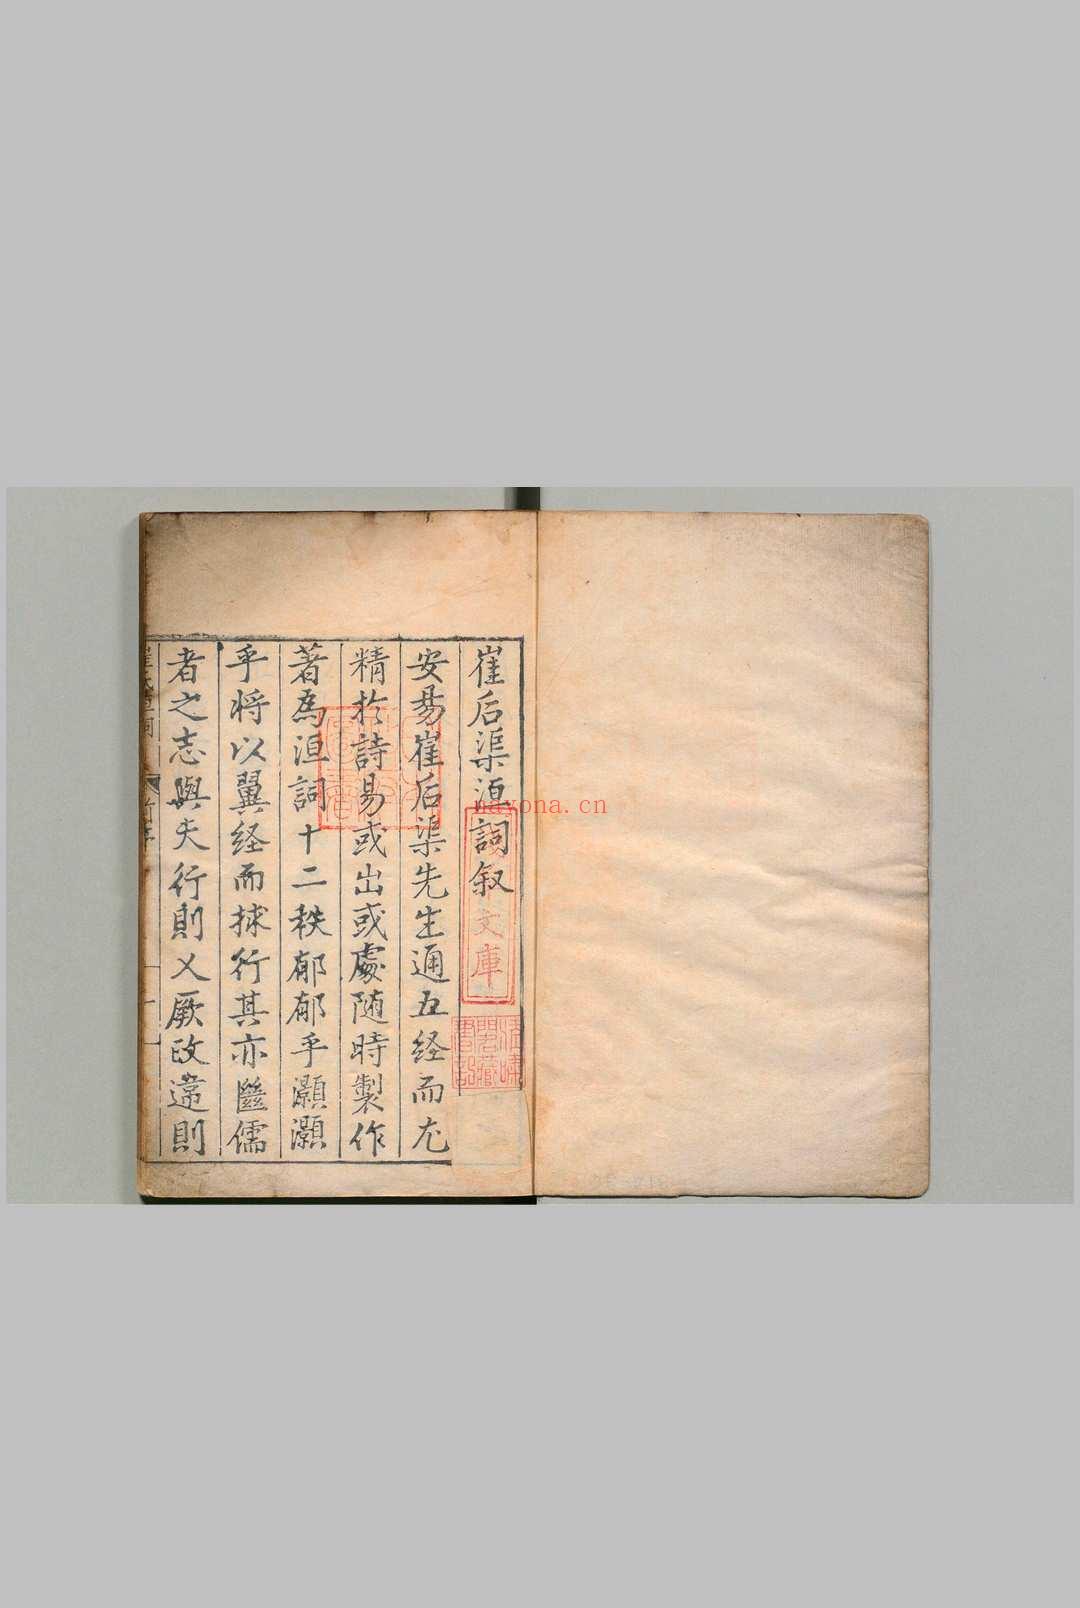 崔后渠洹詞叙
安昜崔后渠先生通五经而尤
精於詩易或出或處随時製作
著為洹詞十二秩郁郁乎灝灝
乎将以翼经而捄行其亦
儒
者之志與夫行則乂厥政違則
文庫
nayona.cn